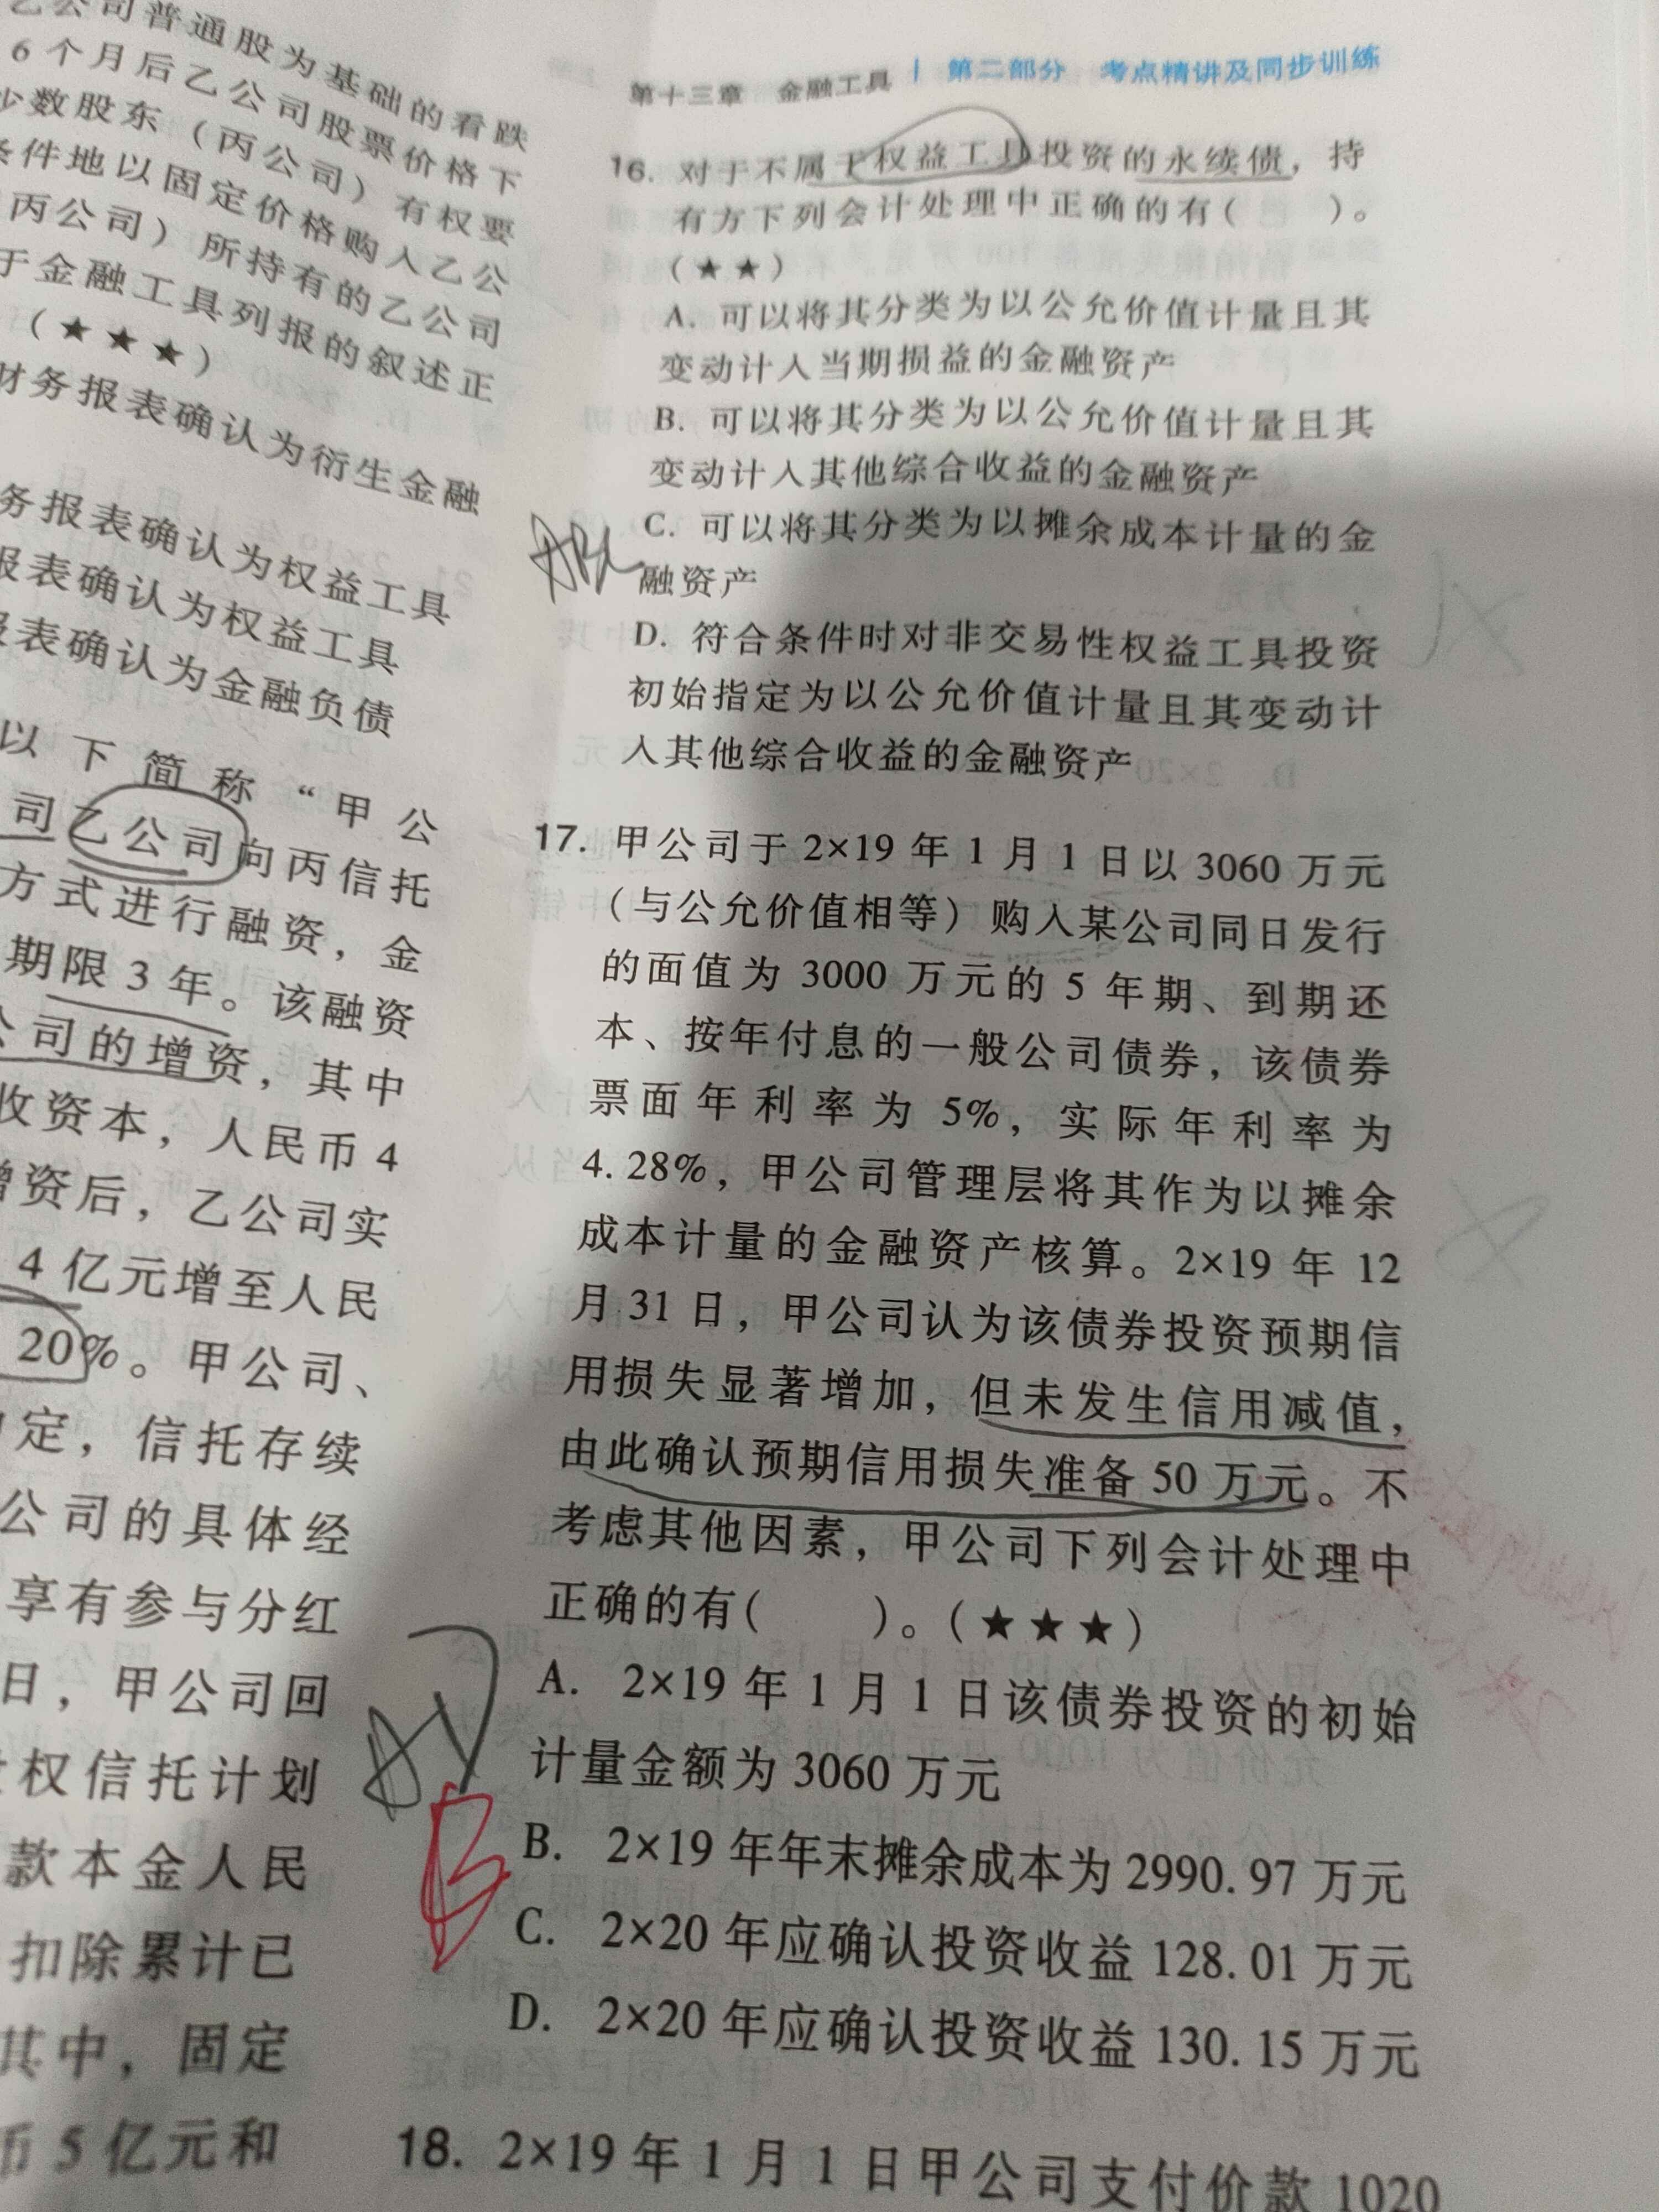 乙公司普通股为基础的看跌
6个月后乙公司股票价格下
少数股东（丙公司）有权要
条件地以固定价格购入乙公
丙公司）所持有的乙公司
于金融工具列报的叙述正
（★★★）
财务报表确认为衍生金融
务报表确认为权益工具
报表确认为权益工具
报表确认为金融负债
以下简称“甲公
司乙公司向丙信托
方式进行融资，金
期限3年。该融资
公司的增资，其中
收资本，人民币4
增资后，乙公司实
4亿元增至人民
20%。甲公司、
定，信托存续
公司的具体经
享有参与分红
日，甲公司回
权信托计划
款本金人民
扣除累计已
其中，固定
币5亿元和
第十三章 金融工具 | 第二部分 考点精讲及同步训练
16. 对于不属于权益工具投资的永续债，持
有方下列会计处理中正确的有（ ）。
（★★）
A. 可以将其分类为以公允价值计量且其
变动计入当期损益的金融资产
B. 可以将其分类为以公允价值计量且其
变动计入其他综合收益的金融资产
C. 可以将其分类为以摊余成本计量的金
融资产
D. 符合条件时对非交易性权益工具投资
初始指定为以公允价值计量且其变动计
入其他综合收益的金融资产
17. 甲公司于2×19年1月1日以3060万元
（与公允价值相等）购入某公司同日发行
的面值为3000万元的5年期、到期还
本、按年付息的一般公司债券，该债券
票面年利率为5%，实际年利率为
4.28%，甲公司管理层将其作为以摊余
成本计量的金融资产核算。2×19年12
月31日，甲公司认为该债券投资预期信
用损失显著增加，但未发生信用减值，
由此确认预期信用损失准备50万元。不
考虑其他因素，甲公司下列会计处理中
正确的有（ ）。（★★★）
A. 2×19年1月1日该债券投资的初始
计量金额为3060万元
B. 2×19年年末摊余成本为2990.97万元
C. 2×20年应确认投资收益128.01万元
D. 2×20年应确认投资收益130.15万元
18. 2×19年1月1日甲公司支付价款1020